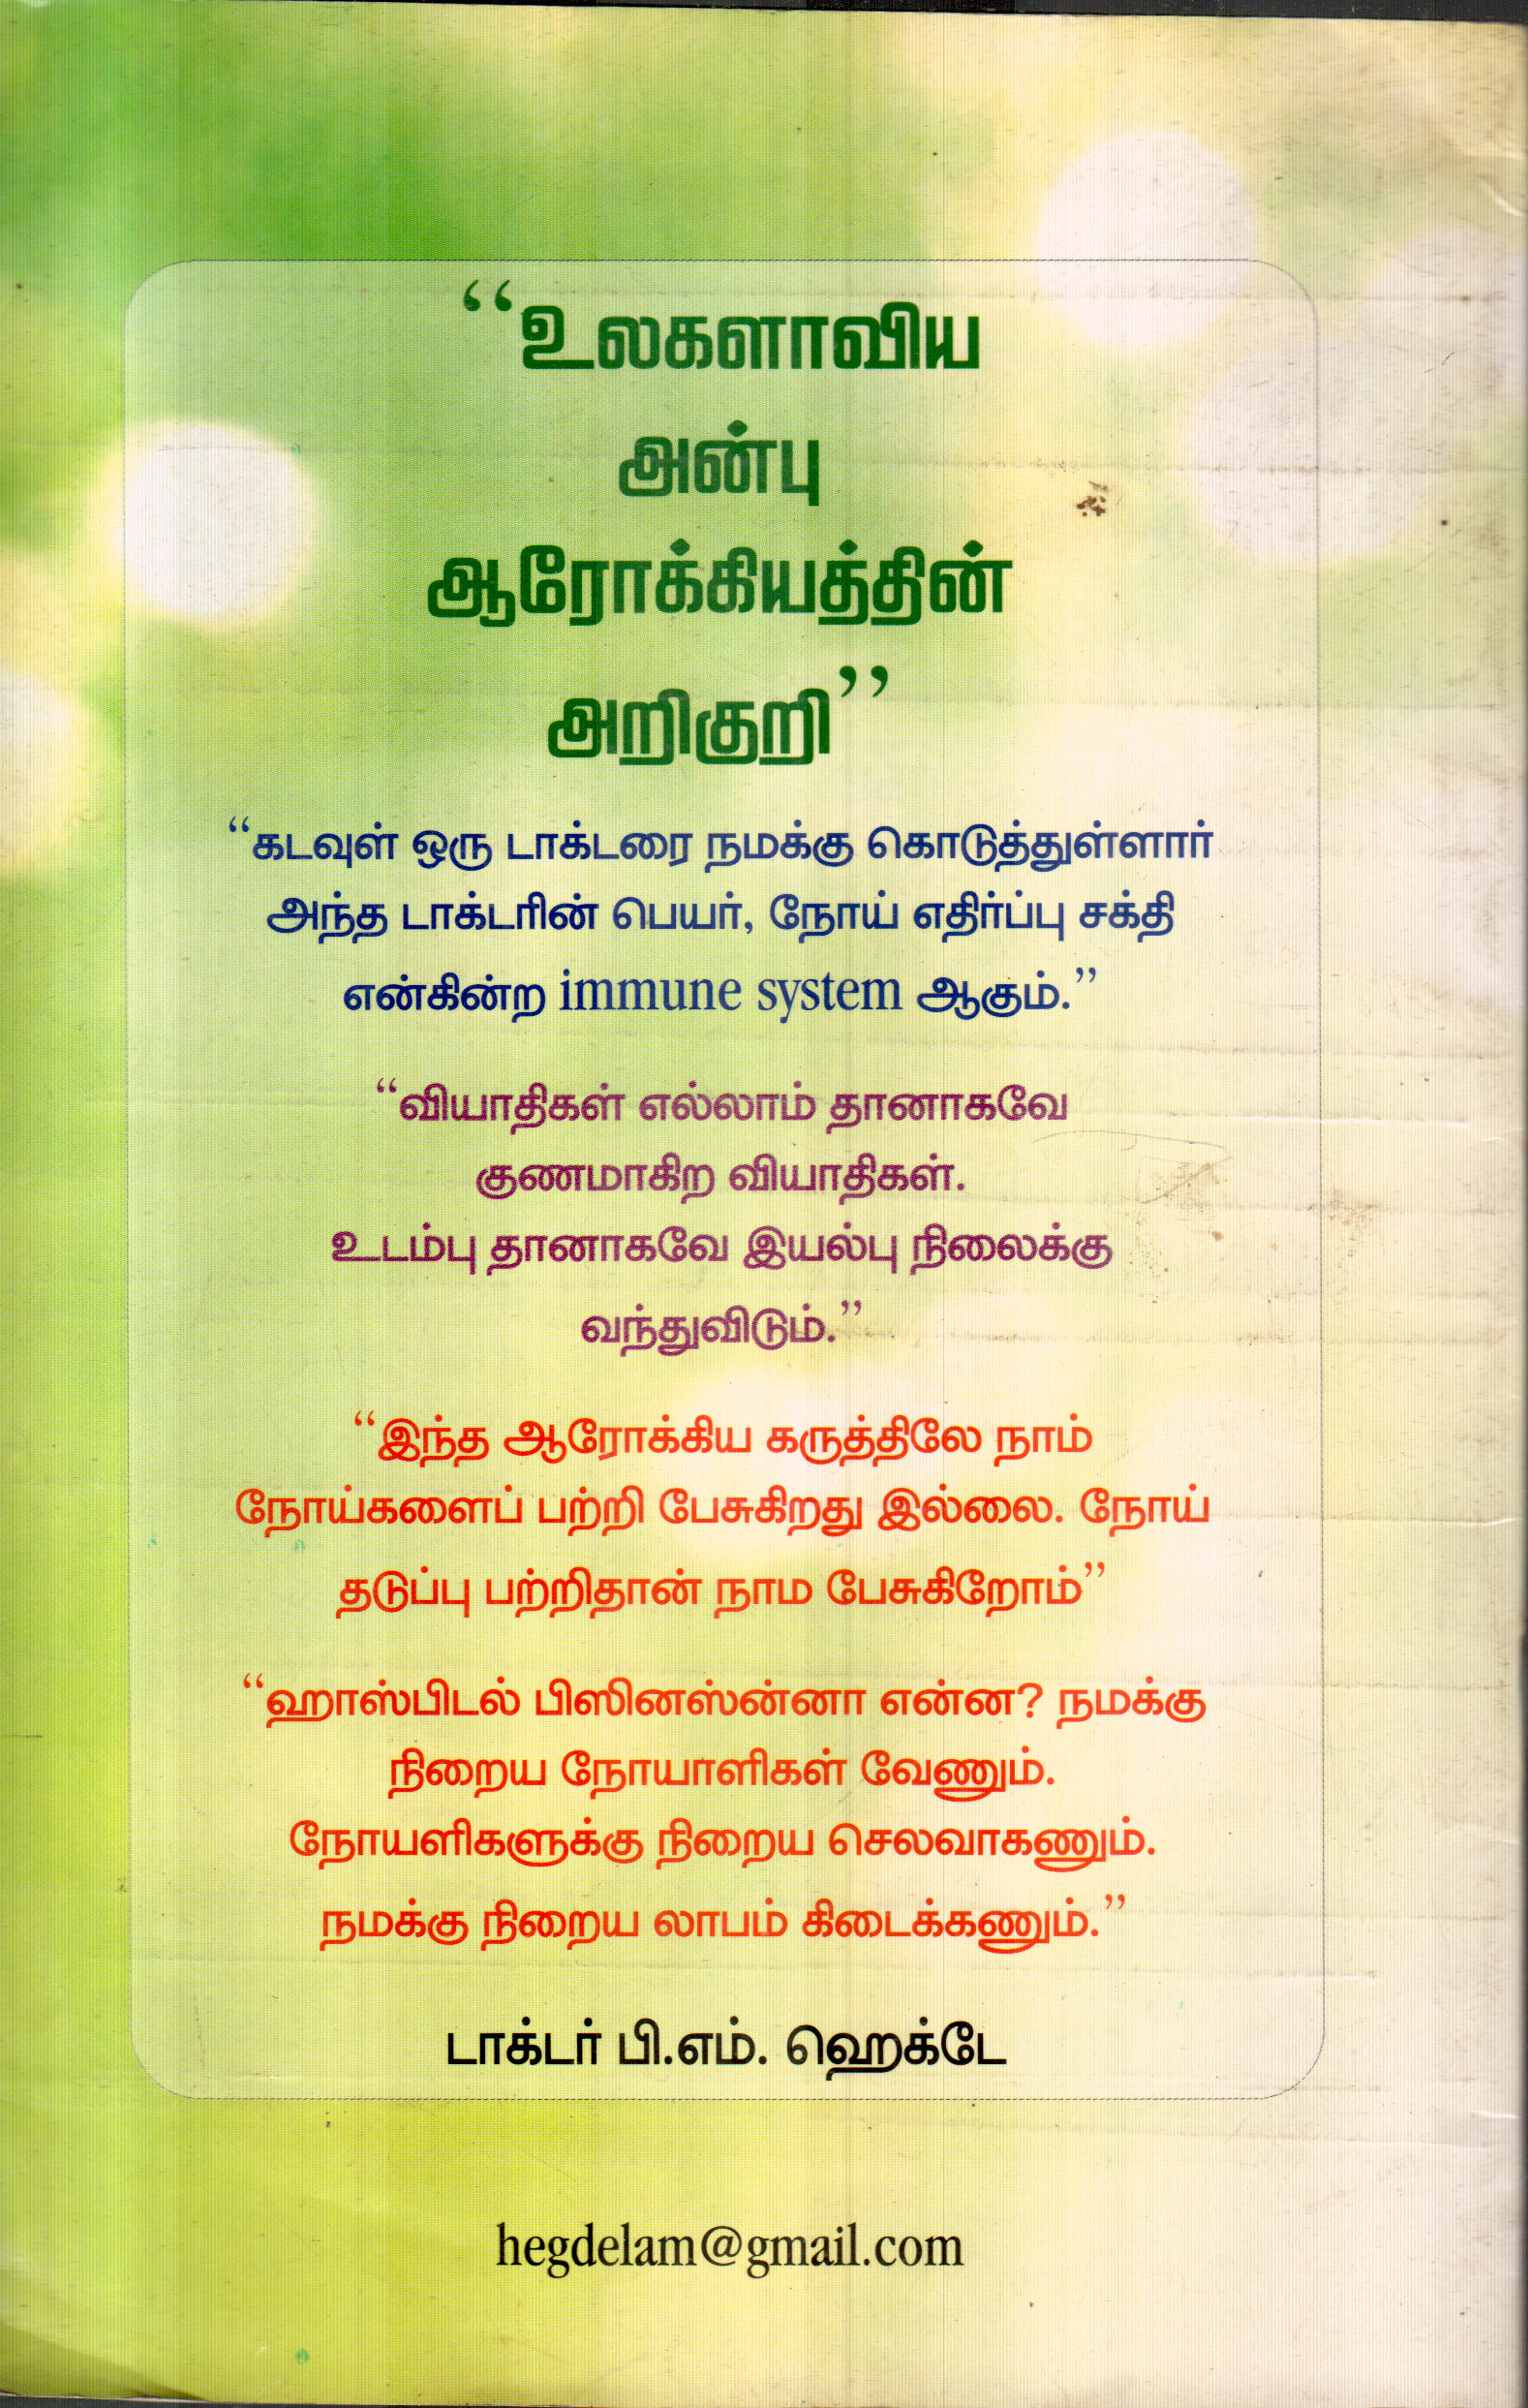 “உலகளாவிய
அன்பு
ஆரோக்கியத்தின்
அறிகுறி”
“கடவுள் ஒரு டாக்டரை நமக்கு கொடுத்துள்ளார்
அந்த டாக்டரின் பெயர், நோய் எதிர்ப்பு சக்தி
என்கின்ற immune system ஆகும்.”
“வியாதிகள் எல்லாம் தானாகவே
குணமாகிற வியாதிகள்.
உடம்பு தானாகவே இயல்பு நிலைக்கு
வந்துவிடும்.”
“இந்த ஆரோக்கிய கருத்திலே நாம்
நோய்களைப் பற்றி பேசுகிறது இல்லை. நோய்
தடுப்பு பற்றிதான் நாம பேசுகிறோம்”
“ஹாஸ்பிடல் பிஸினஸ்ன்னா என்ன? நமக்கு
நிறைய நோயாளிகள் வேணும்.
நோயளிகளுக்கு நிறைய செலவாகணும்.
நமக்கு நிறைய லாபம் கிடைக்கணும்.”
டாக்டர் பி.எம். ஹெக்டே
hegdelam@gmail.com